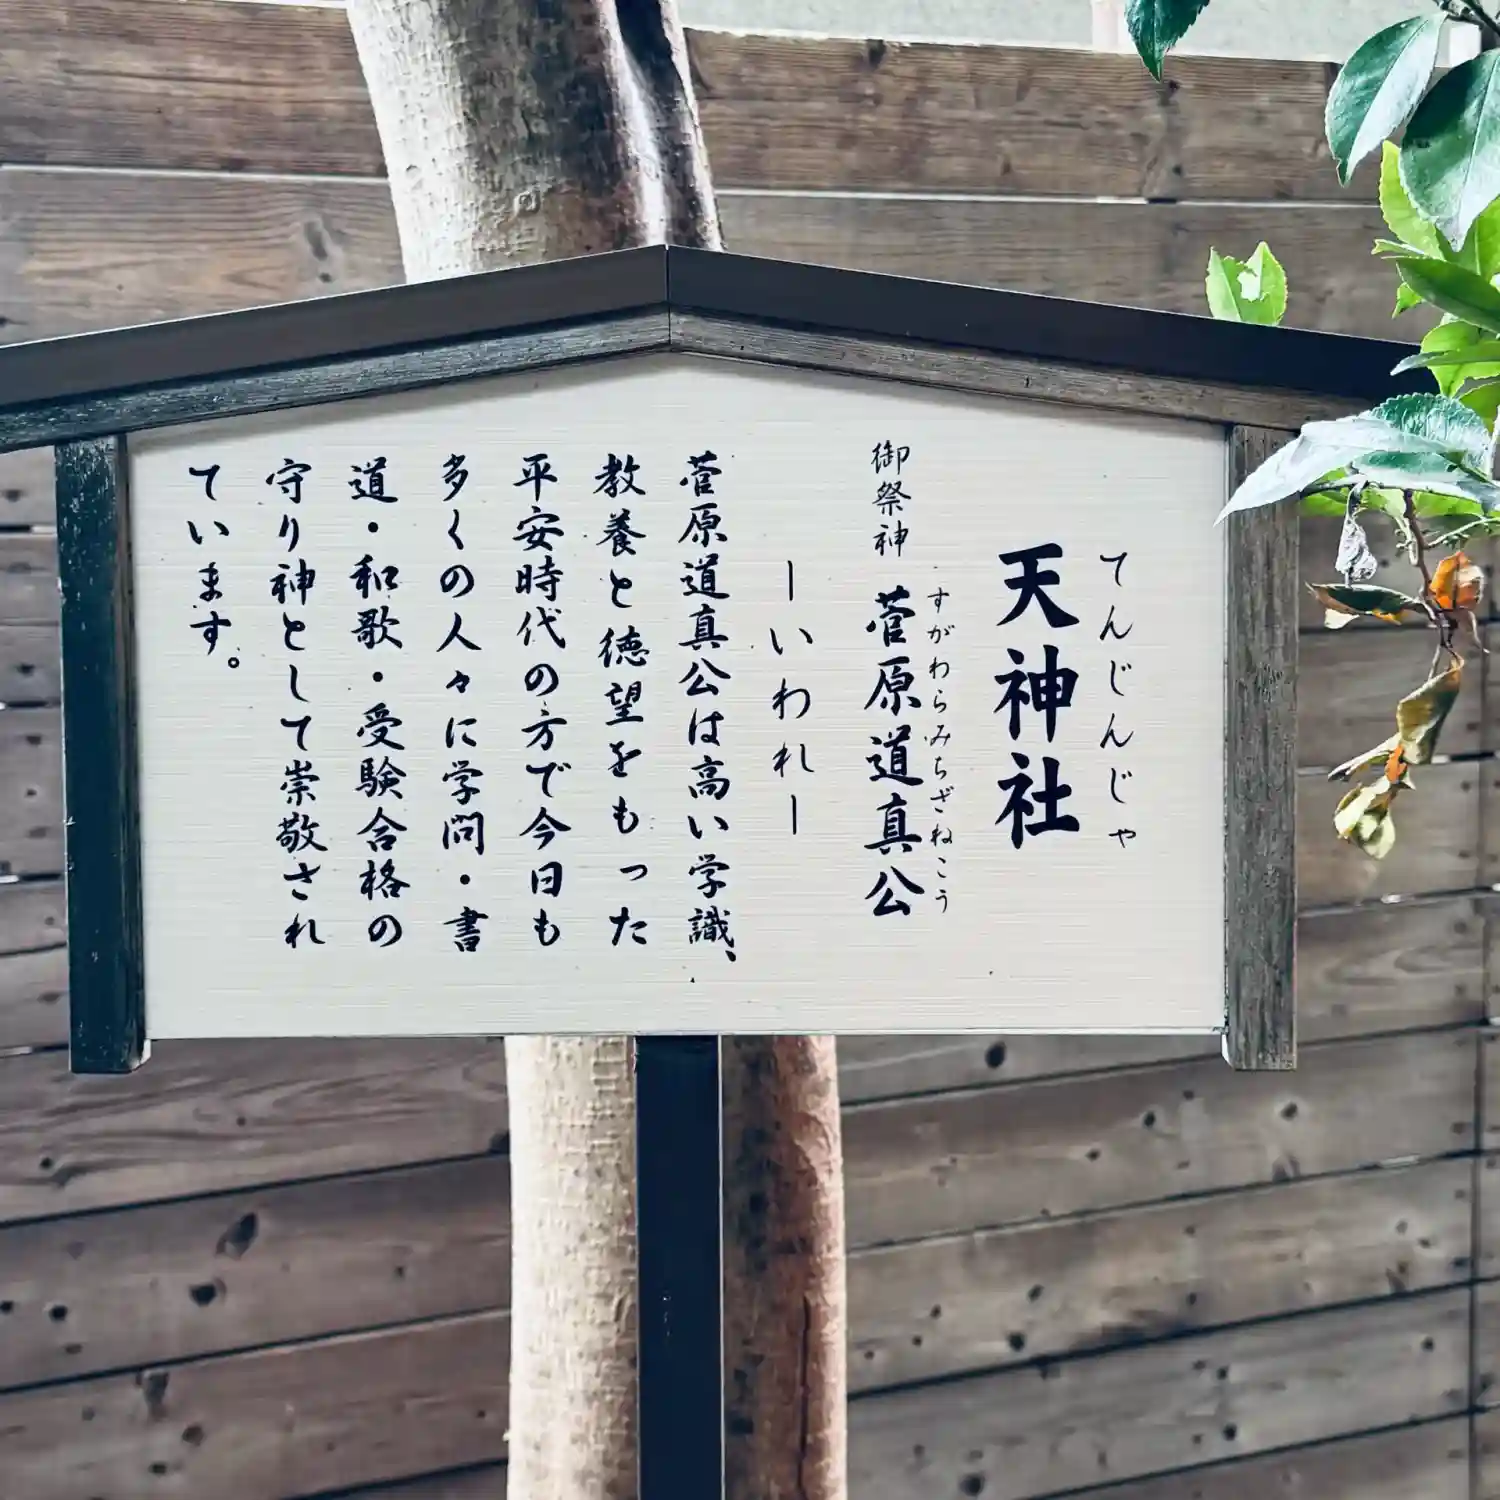 てんじんじゃ
天神社
すがわらみちざねこう
御祭神 菅原道真公
ーいわれー
菅原道真公は高い学識、
教養と徳望をもった
平安時代の方で今日も
多くの人々に学問・書
道・和歌・受験合格の
守り神として崇敬され
ています。